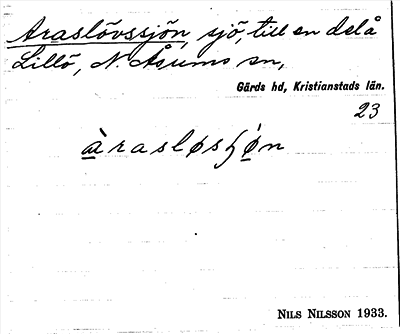 Araslövssjön, sjö, till en del å
Lillö, N. Åsums sn,
Gärds hd, Kristianstads län.
23
àrasløsʃǿn
NILS NILSSON 1933.